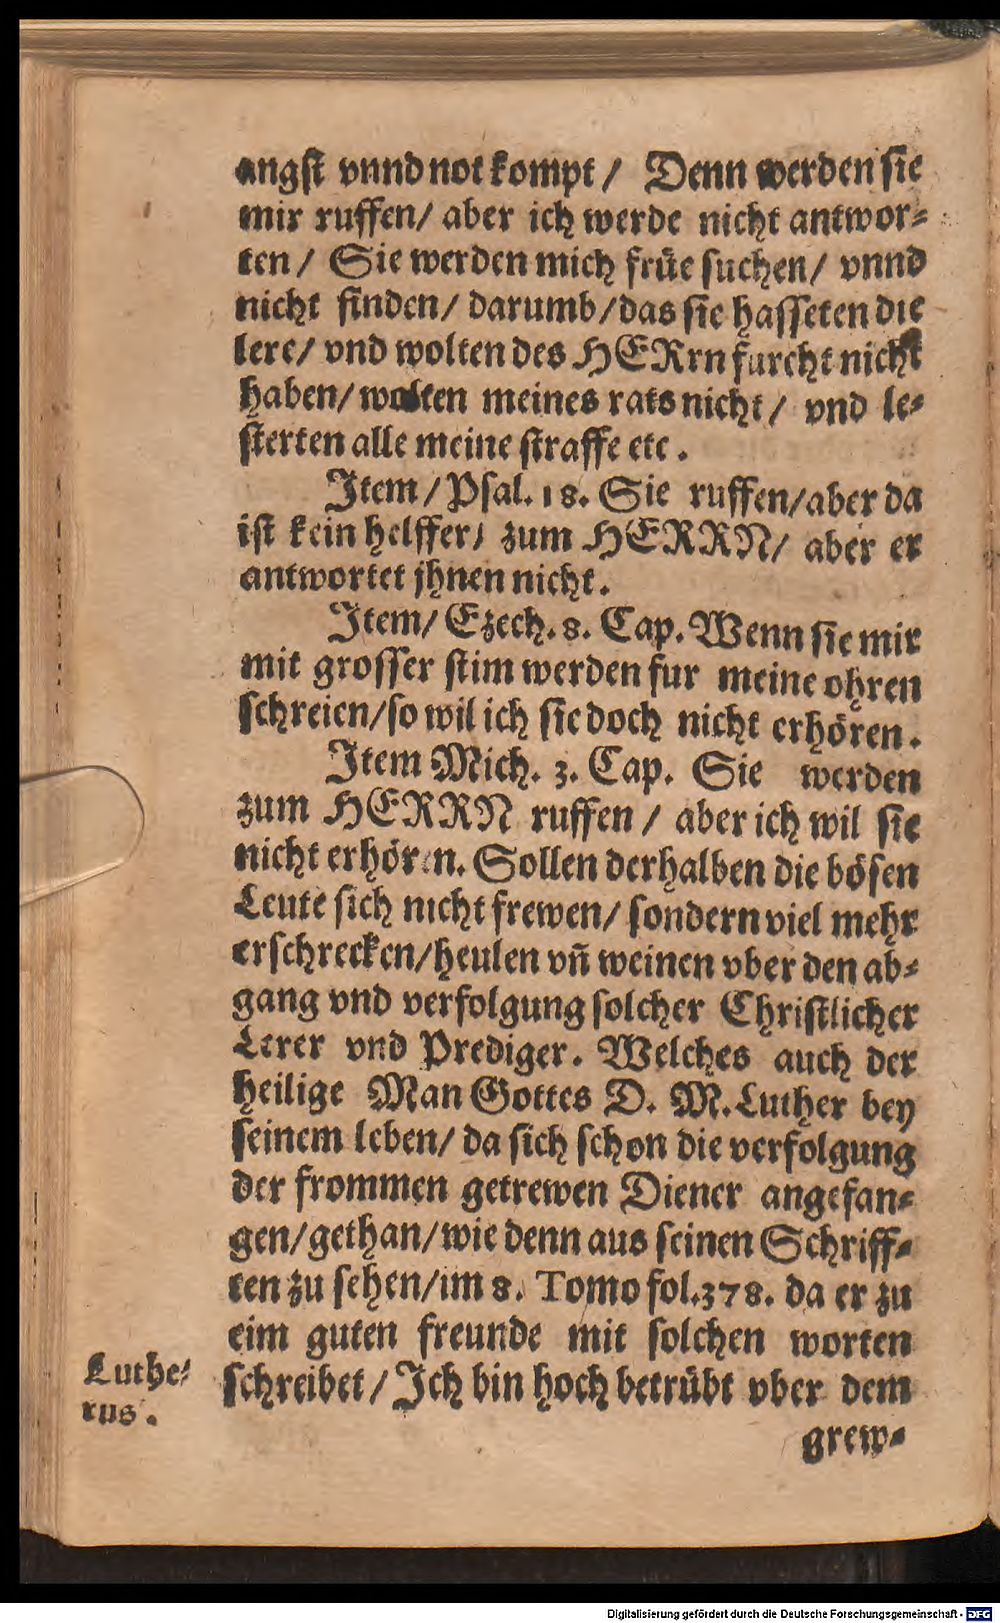 angst vnnd not kompt / Denn werden sie
mir ruffen/ aber ich werde nicht antwor⸗
ten / Sie werden mich früe suchen/ vnnd
nicht finden/ darumb/das sie hasseten die
lere/ vnd wolten des HERrn furcht nicht
haben/ wolten meines rats nicht / vnd le⸗
sterten alle meine straffe etc .
Item / Psal. 18. Sie ruffen/aber da
ist kein helffer/ zum HERRN/ aber er
antwortet jhnen nicht.
Item/ Ezech. 8. Cap. Wenn sie mir
mit grosser stim werden fur meine ohren
schreien/so wil ich sie doch nicht erhören.
Item Mich. 3. Cap. Sie werden
zum HERRN ruffen / aber ich wil sie
nicht erhören. Sollen derhalben die bösen
Leute sich nicht frewen/ sondern viel mehr
erschrecken/heulen vn̄ weinen vber den ab⸗
gang vnd verfolgung solcher Christlicher
Lerer vnd Prediger. Welches auch der
heilige Man Gottes D. M. Luther bey
seinem leben/ da sich schon die verfolgung
der frommen getrewen Diener angefan⸗
gen/gethan/wie denn aus seinen Schriff⸗
ten zu sehen/im 8. Tomo fol.378. da er zu
eim guten freunde mit solchen worten
schreibet / Ich bin hoch betrübt vber dem
Luthe⸗
rus.
grew⸗
Digitalisierung gefördert durch die Deutsche Forschungsgemeinschaft - DFG